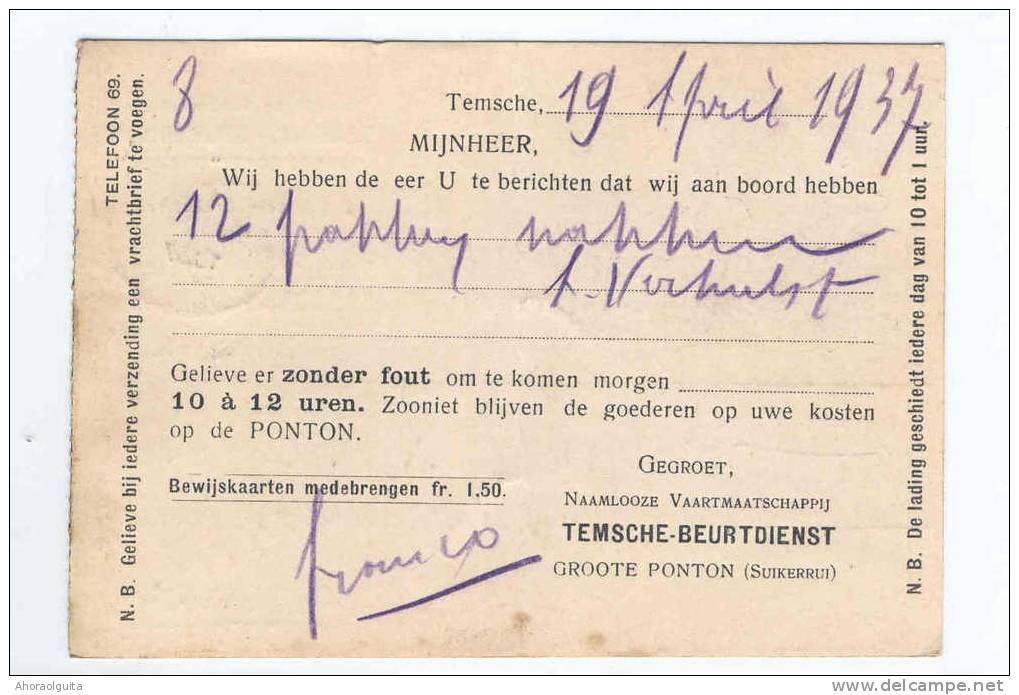 TELEFOON 69.
N. B. Gelieve bij iedere verzending een vrachtbrief te voegen.
8
Temsche, 19 April 1937
MIJNHEER,
Wij hebben de eer U te berichten dat wij aan boord hebben
12
A. Verhulst
Gelieve er zonder fout om te komen morgen
10 à 12 uren. Zooniet blijven de goederen op uwe kosten
op de PONTON.
Bewijskaarten medebrengen fr. 1,50.
franco
GEGROET,
NAAMLOOZE VAARTMAATSCHAPPIJ
TEMSCHE-BEURTDIENST
GROOTE PONTON (SUIKERRUI)
N. B. De lading geschiedt iedere dag van 10 tot 1 uur.
Ahoraolguita
delcampe.net